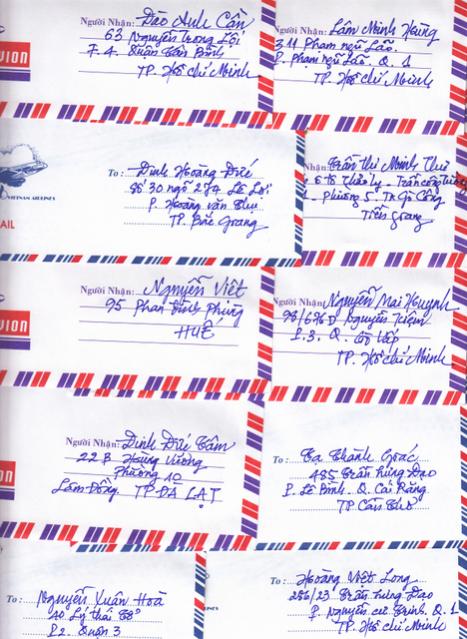 Người Nhận: Đào Anh Cần
63 Nguyễn Trọng Lội
F.4 Quận Tân Bình
TP. Hồ Chí Minh
VION
Người Nhận: Lâm Minh Hưng
311 Phạm ngũ Lão
P. Phạm ngũ Lão Q. 1
TP. Hồ Chí Minh
VIETNAM AIRLINES
AIL
To: Đinh Hoàng Đức
Số 30 ngõ 274 Lê Lợi
P. Hoàng văn Thụ
TP. Bắc Giang
Trần Thị Minh Thư
Phường 5. TX Gò Công
Tiền Giang
VION
Người Nhận: Nguyễn Viết
95 Phan Đình Phùng
HUẾ
Người Nhận: Nguyễn Mai Huỳnh
Nguyễn Kiệm
F.3. Q. Gò Vấp
TP. Hồ Chí Minh
VION
Người Nhận: Đinh Đức Tâm
22B Hùng Vương
Phường 10
Lâm Đồng. TP ĐÀ LẠT
To: Tạ Thành
485 Trần Hưng Đạo
P. Lê Bình. Q. Cái Răng
TP Cần Thơ
To: Nguyễn Xuân Hoà
40 Lý Thái Tổ
P2. Quận 3
To: Hoàng Việt Long
256/23 Trần Hưng Đạo
P. Nguyễn cư Trinh. Q. 1
TP. Hồ Chí Minh